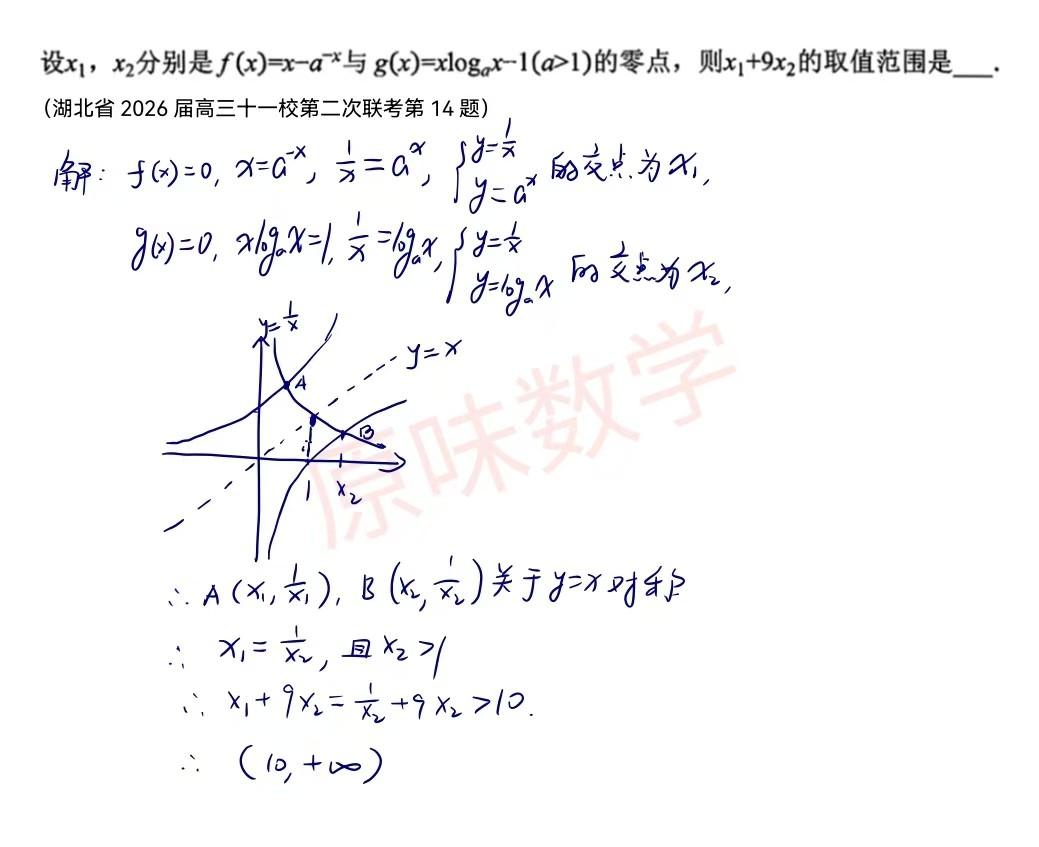 设x₁，x₂分别是f(x)=x-a⁻ˣ与g(x)=xlogₐx-1(a>1)的零点，则x₁+9x₂的取值范围是___.
（湖北省2026届高三十一校第二次联考第14题）
解：f(x)=0, x=a⁻ˣ, 1/x=aˣ, {y=1/x y=aˣ 的交点为x₁,
g(x)=0, xlogₐx=1, 1/x=logₐx, {y=1/x y=logₐx 的交点为x₂,
y=1/x
y=x
A
B
1 x₂
原味数学
∴ A(x₁, 1/x₁), B(x₂, 1/x₂)关于y=x对称
∴ x₁=1/x₂, 且x₂>1
∴ x₁+9x₂=1/x₂+9x₂>10.
∴ (10,+∞)